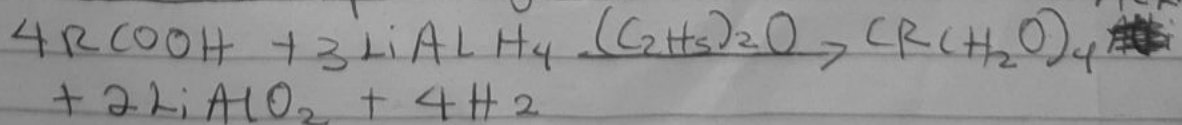 4RCOOH + 3LiALH4 (C2H5)2O → (RCH2O)4
+ 2LiAlO2 + 4H2